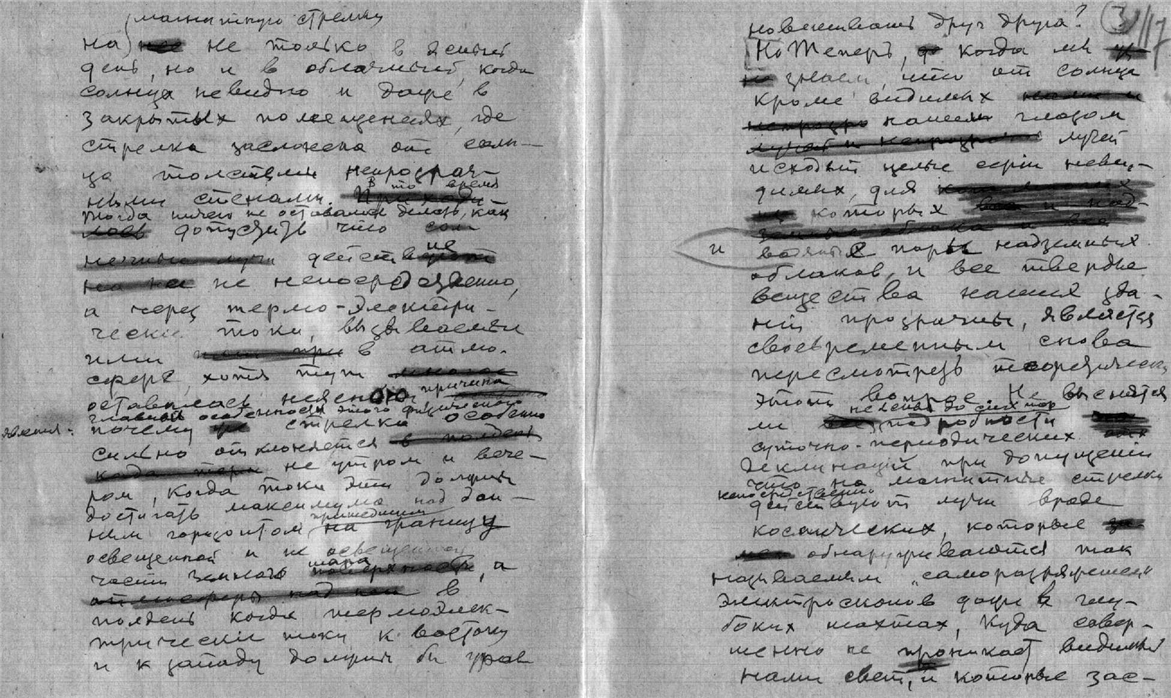 магнитную стрелку
на не только в ясный
день, но и в облачный, когда
солнца невидно и даже в
закрытых помещениях, где
стрелка заслонена от солн-
ца толстыми непрозрач-
ными стенами. В то время
тогда ничего не оставалось делать, как
допустить что
действуют не
не непосредственно,
а через термо-электри-
ческие токи, вызываемые
ими в атмо-
сфере, хотя тут
оставалась неясною причина
главной особенности этого физического
явления:
почему стрелка особенно
сильно отклоняется
не утром и вече-
ром, когда токи эти должны
достигать максимума над дан-
ным горизонтом на границу
освещенной и не освещенной
части земного шара, а
в
полдень когда термоэлек-
трические токи к востоку
и к западу должны бы урав
новешивать друг друга?
31/17
Но теперь, когда мы
знаем, что от солнца
кроме видимых
нашим глазом
лучей
исходят целые серии неви-
димых, для
которых
и водяные пары надземных
облаков, и все твердые
вещества наших зда-
ний прозрачны, является
своевременным снова
пересмотреть теоретически
этот вопрос. Не выяснятся
ли неясные до сих пор
подробности
суточно-периодических
деклинаций при допущении
что на магнитные стрелки
непосредственно
действуют лучи вроде
космических, которые
обнаруживаются так
называемым „саморазряжением"
электроскопов даже в глу-
боких шахтах, куда совер-
шенно не проникает видимый
нами свет, и которые зас-